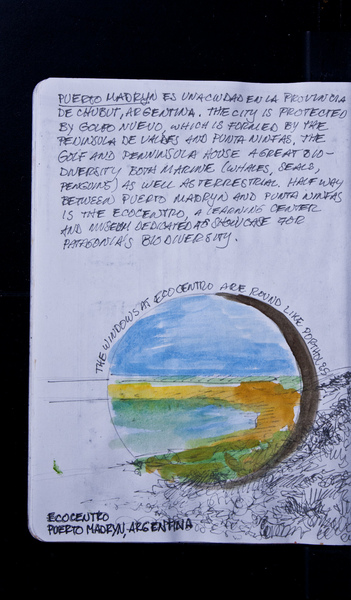 PUERTO MADRYN ES UNA CIUDAD EN LA PROVINCIA
DE CHUBUT, ARGENTINA. THE CITY IS PROTECTED
BY GOLFO NUEVO, WHICH IS FORMED BY THE
PENINSULA DE VALDES AND PUNTA NINFAS, THE
GOLF AND PENNINSULA HOUSE A GREAT BIO-
DIVERSITY BOTH MARINE (WHALES, SEALS,
PENGUINS) AS WELL AS TERRESTRIAL. HALF WAY
BETWEEN PUERTO MADRYN AND PUNTA NINFAS
IS THE ECOCENTRO, A LEARNING CENTER
AND MUSEUM DEDICATED AS SHOWCASE FOR
PATAGONIA'S BIODIVERSITY.
THE WINDOWS AT ECOCENTRO ARE ROUND LIKE PORTHOLES
ECOCENTRO
PUERTO MADRYN, ARGENTINA